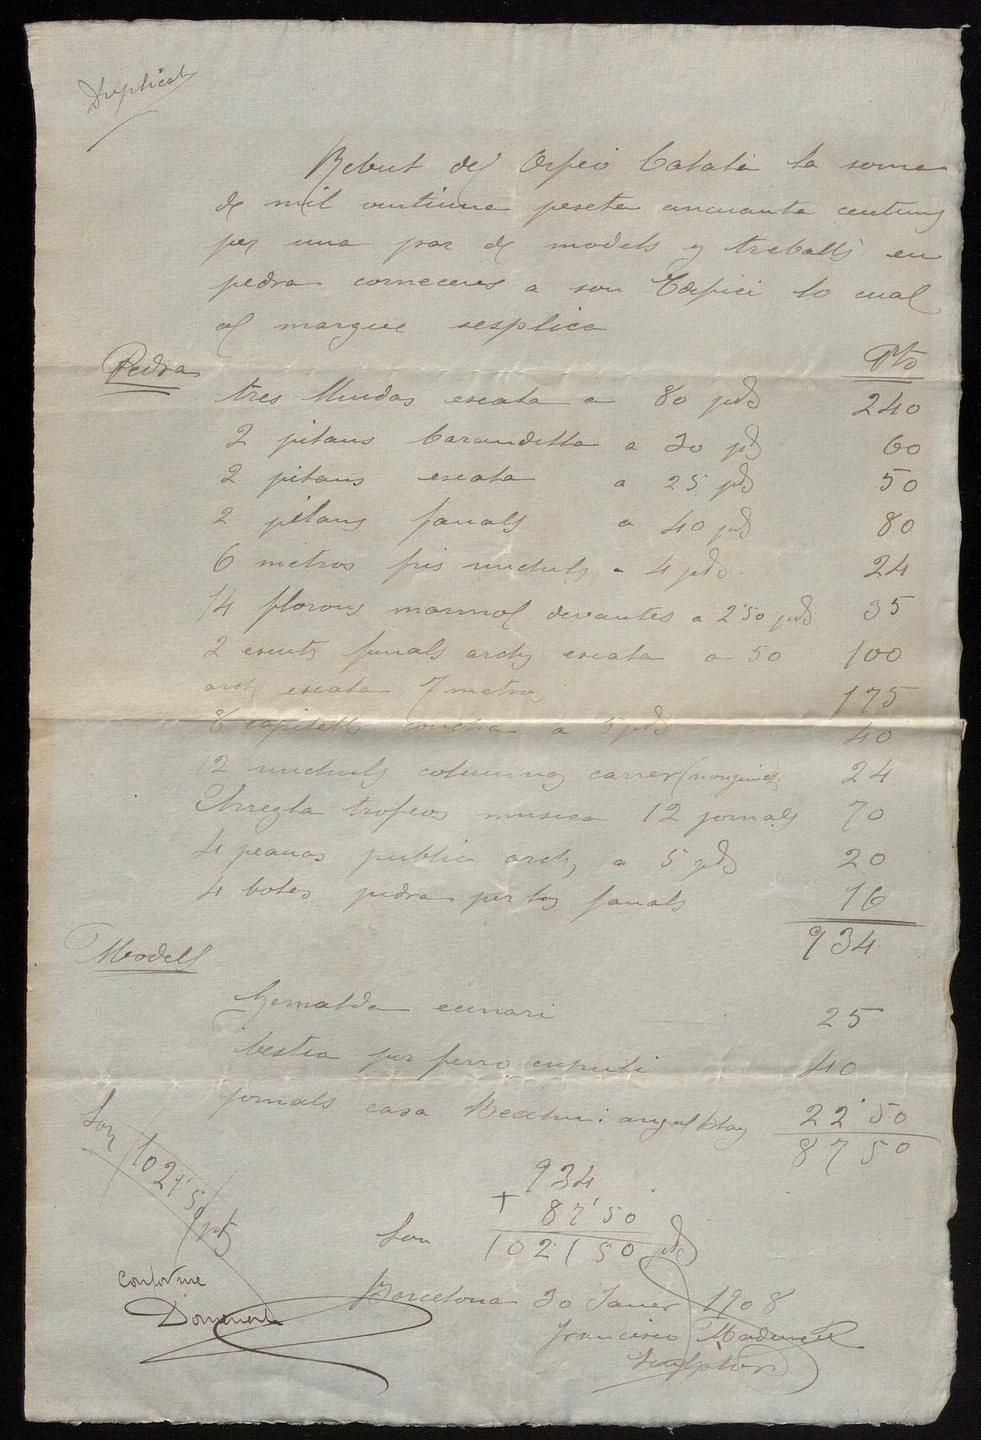 Duplicat
Rebut del Orfeó Catalá la soma
de mil vintiuna peseta cincuanta centims
per una par de models y treballs en
pedra a son Edifici lo cual
al margue sesplica
Pedra
Pts
tres escala a 80 pts 240
2 pilans barandilla a 30 pts 60
2 pilans escala a 25 pts 50
2 pilans fanals a 40 pts 80
6 metros fris a 4 pts 24
14 florons marmol devantes a 2'50 pts 35
2 escuts fanals archs escala a 50 100
arch escala 7 metros 175
8 capitells concha a 5 pts 40
12 columnas carrer 24
Arregla trofeos musica 12 jornals 70
4 peanas public archs a 5 pts 20
4 botes pedra per los fanals 16
934
Models
ecenari 25
bestia per ferro 40
jornals casa 22'50
87 50
Son 1021'50 pts
934
+ 87'50
Son 1021 50 pts
Conforme
Domenech
Barcelona 30 Janer 1908
Francisco
Sculptor